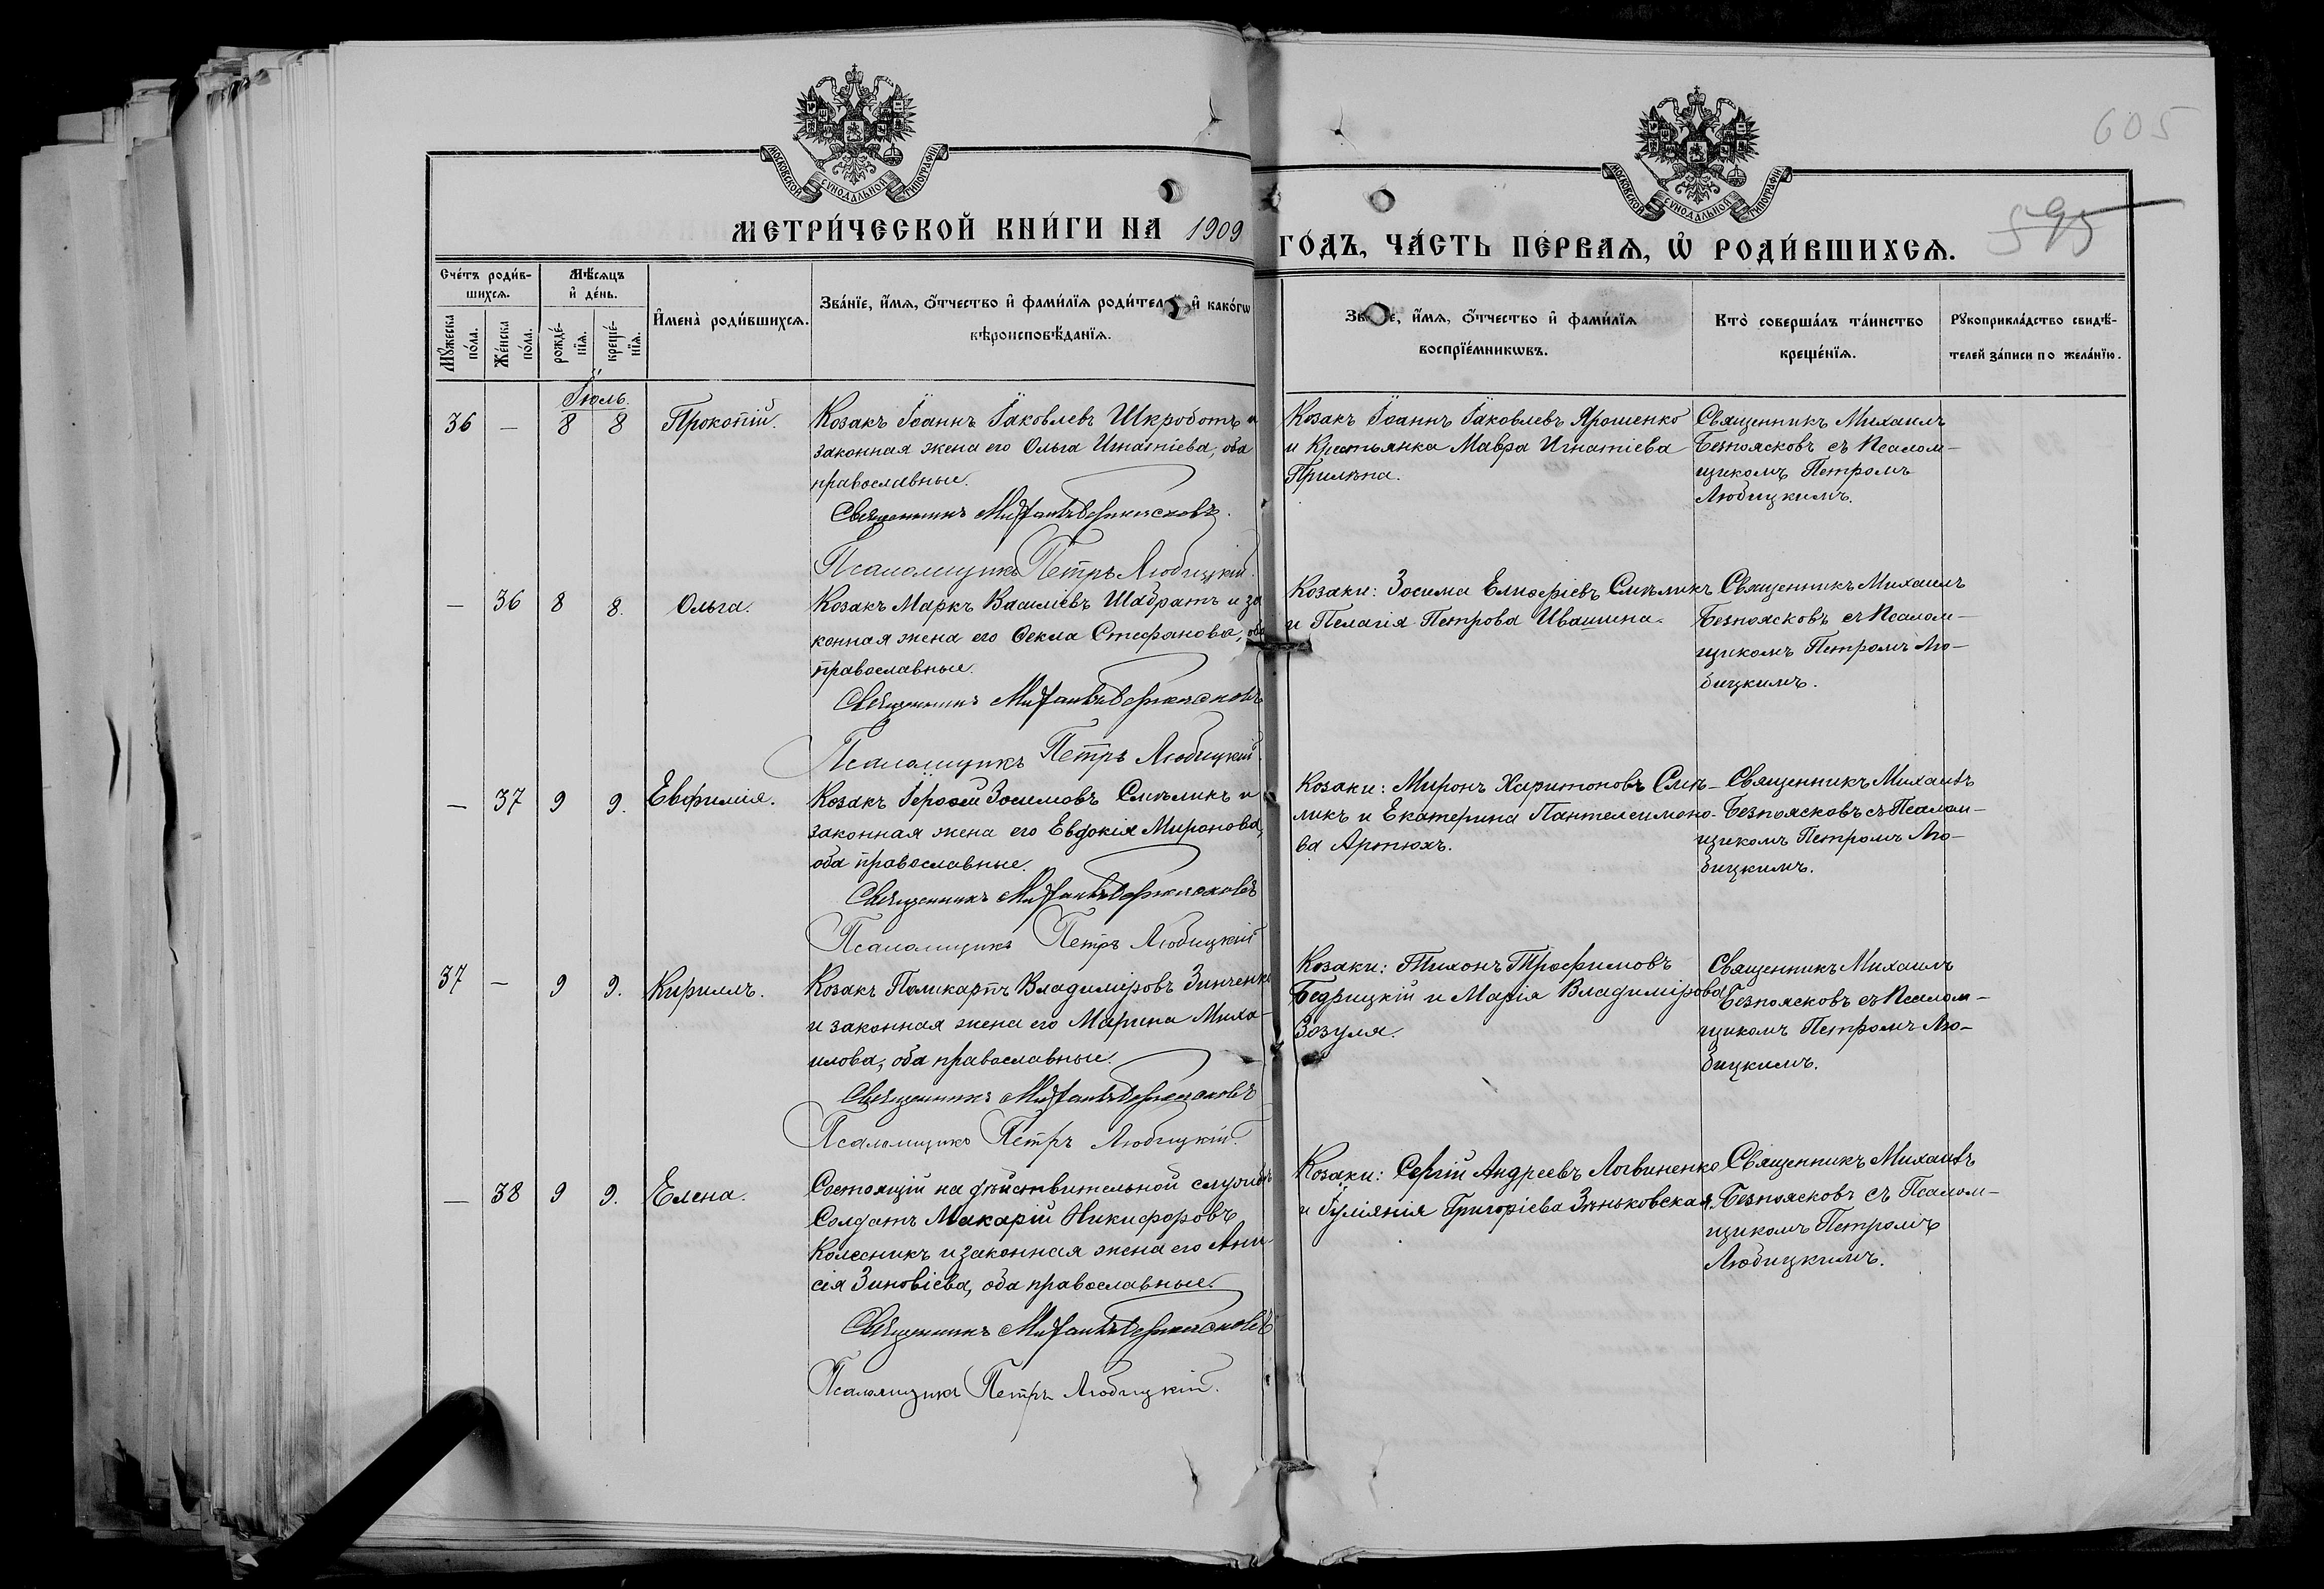 605
595
МОСКОВСКОЙ СУНОДАЛЬНОЙ ТИПОГРАФІИ
МОСКОВСКОЙ СУНОДАЛЬНОЙ ТИПОГРАФІИ
МЕТРИ́ЧЕСКОЙ КНИ́ГИ НА 1909 ГО́ДЪ, ЧА́СТЬ ПЕ́РВАѦ, Ѡ҆ РОДИ́ВШИХСѦ.
Сче́тъ роди́в-
шихсѧ.
Мꙋ́жеска по́ла.
Же́нска по́ла.
Мѣ́сѧцъ
и҆ де́нь.
рожде́-
нїѧ.
креще́-
нїѧ.
И҆мена̀ роди́вшихсѧ.
Зва́нїе, и҆́мѧ, ѻ҆́тчество и҆ фами́лїѧ роди́тел и҆ како́гѡ
вѣроисповѣ́данїѧ.
Зв е, и҆́мѧ, ѻ҆́тчество и҆ фами́лїѧ
воспрїе́мникѡвъ.
Кто̀ соверша́лъ та́инство
креще́нїѧ.
Рꙋкоприкла́дство свидѣ́-
телей за́писи по жела́нїю.
Іюль.
36 — 8 8 Прокопій.
Козакъ Іоаннъ Іаковлевъ Шкроботъ и
законная жена его Ольга Игнатіева, оба
православные.
Священникъ Михаилъ Безпоясковъ.
Псаломщикъ Петръ Любицкій.
Козакъ Іоаннъ Іаковлевъ Ярошенко
и Крестьянка Мавра Игнатіева
Прилѣпа.
Священникъ Михаилъ
Безпоясковъ съ Псалом-
щикомъ Петромъ
Любицкимъ.
— 36 8 8. Ольга.
Козакъ Маркъ Василіевъ Шабратъ и за
конная жена его Ѳекла Стефанова, оба
православные.
Священникъ Михаилъ Безпоясковъ
Псаломщикъ Петръ Любицкій.
Козаки: Зосима Елисеріевъ Смѣликъ
и Пелагія Петрова Ивашина.
Священникъ Михаилъ
Безпоясковъ съ Псалом-
щикомъ Петромъ Лю-
бицкимъ.
— 37 9 9. Евфимія.
Козакъ Іероѳей Зосимовъ Смѣликъ и
законная жена его Евдокія Миронова,
оба православные.
Священникъ Михаилъ Безпоясковъ
Псаломщикъ Петръ Любицкій
Козаки: Миронъ Харитоновъ Смѣ-
ликъ и Екатерина Пантелеимоно-
ва Артюхъ.
Священникъ Михаилъ
Безпоясковъ съ Псалом-
щикомъ Петромъ Лю-
бицкимъ.
37 — 9 9. Кириллъ.
Козакъ Поликарпъ Владиміровъ Зинченко
и законная жена его Марина Миха-
илова, оба православные.
Священникъ Михаилъ Безпоясковъ
Псаломщикъ Петръ Любицкій.
Козаки: Тихонъ Трофимовъ
Бедрицкій и Марія Владимірова
Зозуля.
Священникъ Михаилъ
Безпоясковъ съ Псалом-
щикомъ Петромъ Лю-
бицкимъ.
— 38 9 9. Елена.
Состоящій на дѣйствительной службѣ
Солдатъ Макарій Никифоровъ
Колесникъ и законная жена его Ани
сія Зиновіева, оба православные.
Священникъ Михаилъ Безпоясковъ
Псаломщикъ Петръ Любицкій.
Козаки: Сергій Андреевъ Логвиненко
и Іуліянія Григоріева Зѣньковская.
Священникъ Михаилъ
Безпоясковъ съ Псалом-
щикомъ Петромъ
Любицкимъ.